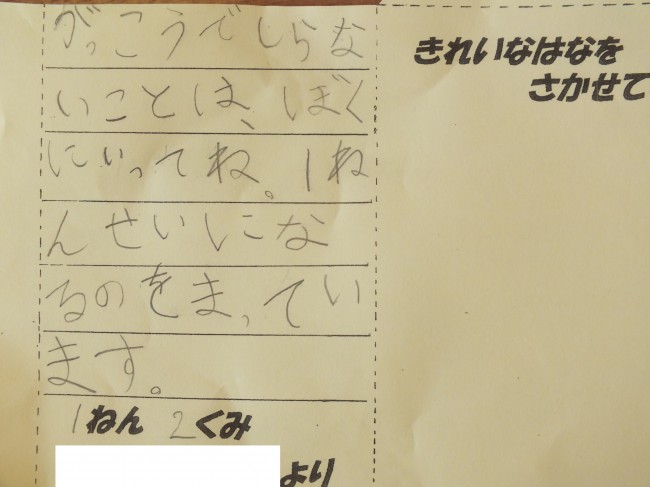 がっこうでしらな
いことは、ぼく
にいってね。1ね
んせいになな
るのをまってい
ます。
1ねん 2くみ
より
きれいなはなを
さかせて